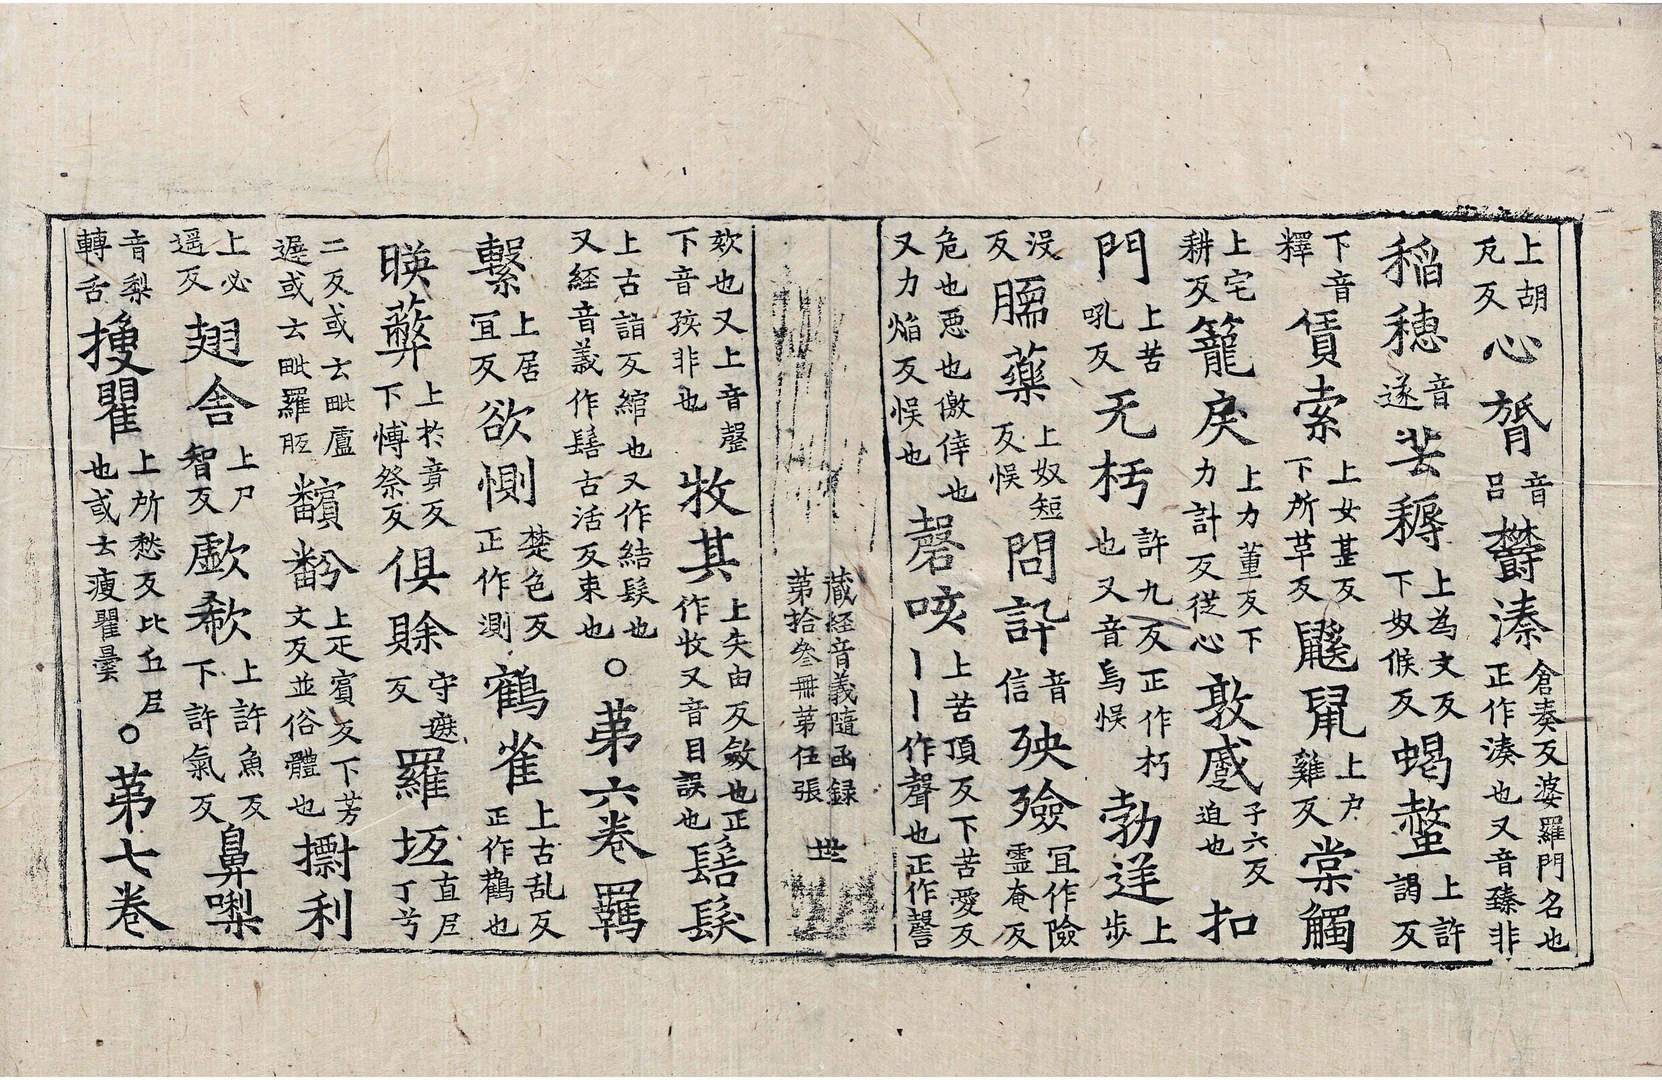 上胡瓦反心膂音呂欝溱倉奏反婆羅門名也正作湊也又音臻非
稻穗音遂芸耨上為文反下奴候反蝎螫上許謁反
下音釋賃索上女甚反下所革反鼷鼠上戶雞反棠觸
上宅耕反籠戾上力董反下力計反從心敦慼子六反迫也扣
門上苦吼反无杇許九反正作朽也又音烏悮勃逆上步
沒反腝藥上奴短反悮問訐音信殃殮冝作險霊奄反
危也惡也儌倖也又力焰反悮也磬咳上苦頂反下苦愛反丨丨作聲也正作謦
藏経音義隨凾録
第拾叄冊第伍張 世
欬也又上音磬下音孩非也牧其上失由反斂也正作收又音目誤也髺髮
上古詣反綰也又作結髮也又経音義作髺古活反束也○第六卷羈
繫上居冝反欲惻楚色反正作測鸛雀上古乱反正作鸛也
暎蔽上扵竟反下博祭反俱賖守遮反羅坘直尼丁兮
二反或云毗盧遲或云毗羅胝䵤䵩上疋賓反下芳文反並俗體也㩨利
上必遥反翅舍上尸智反歔欷上許魚反下許氣反鼻㗚
音梨轉舌㨶瞿上所愁反比丘尼也或云瘦瞿曇○第七卷